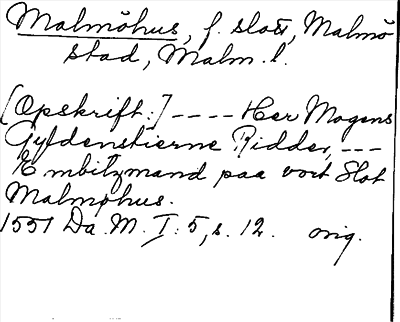 Malmöhus, f. slott, Malmö
stad, Malm. l.
[Opskrift:] ---- Her Mogens
Gyldenstierne Ridder, ---
Embitzmand paa vort Slot
Malmøhus.
1551 Da. M. I: 5, s. 12. orig.